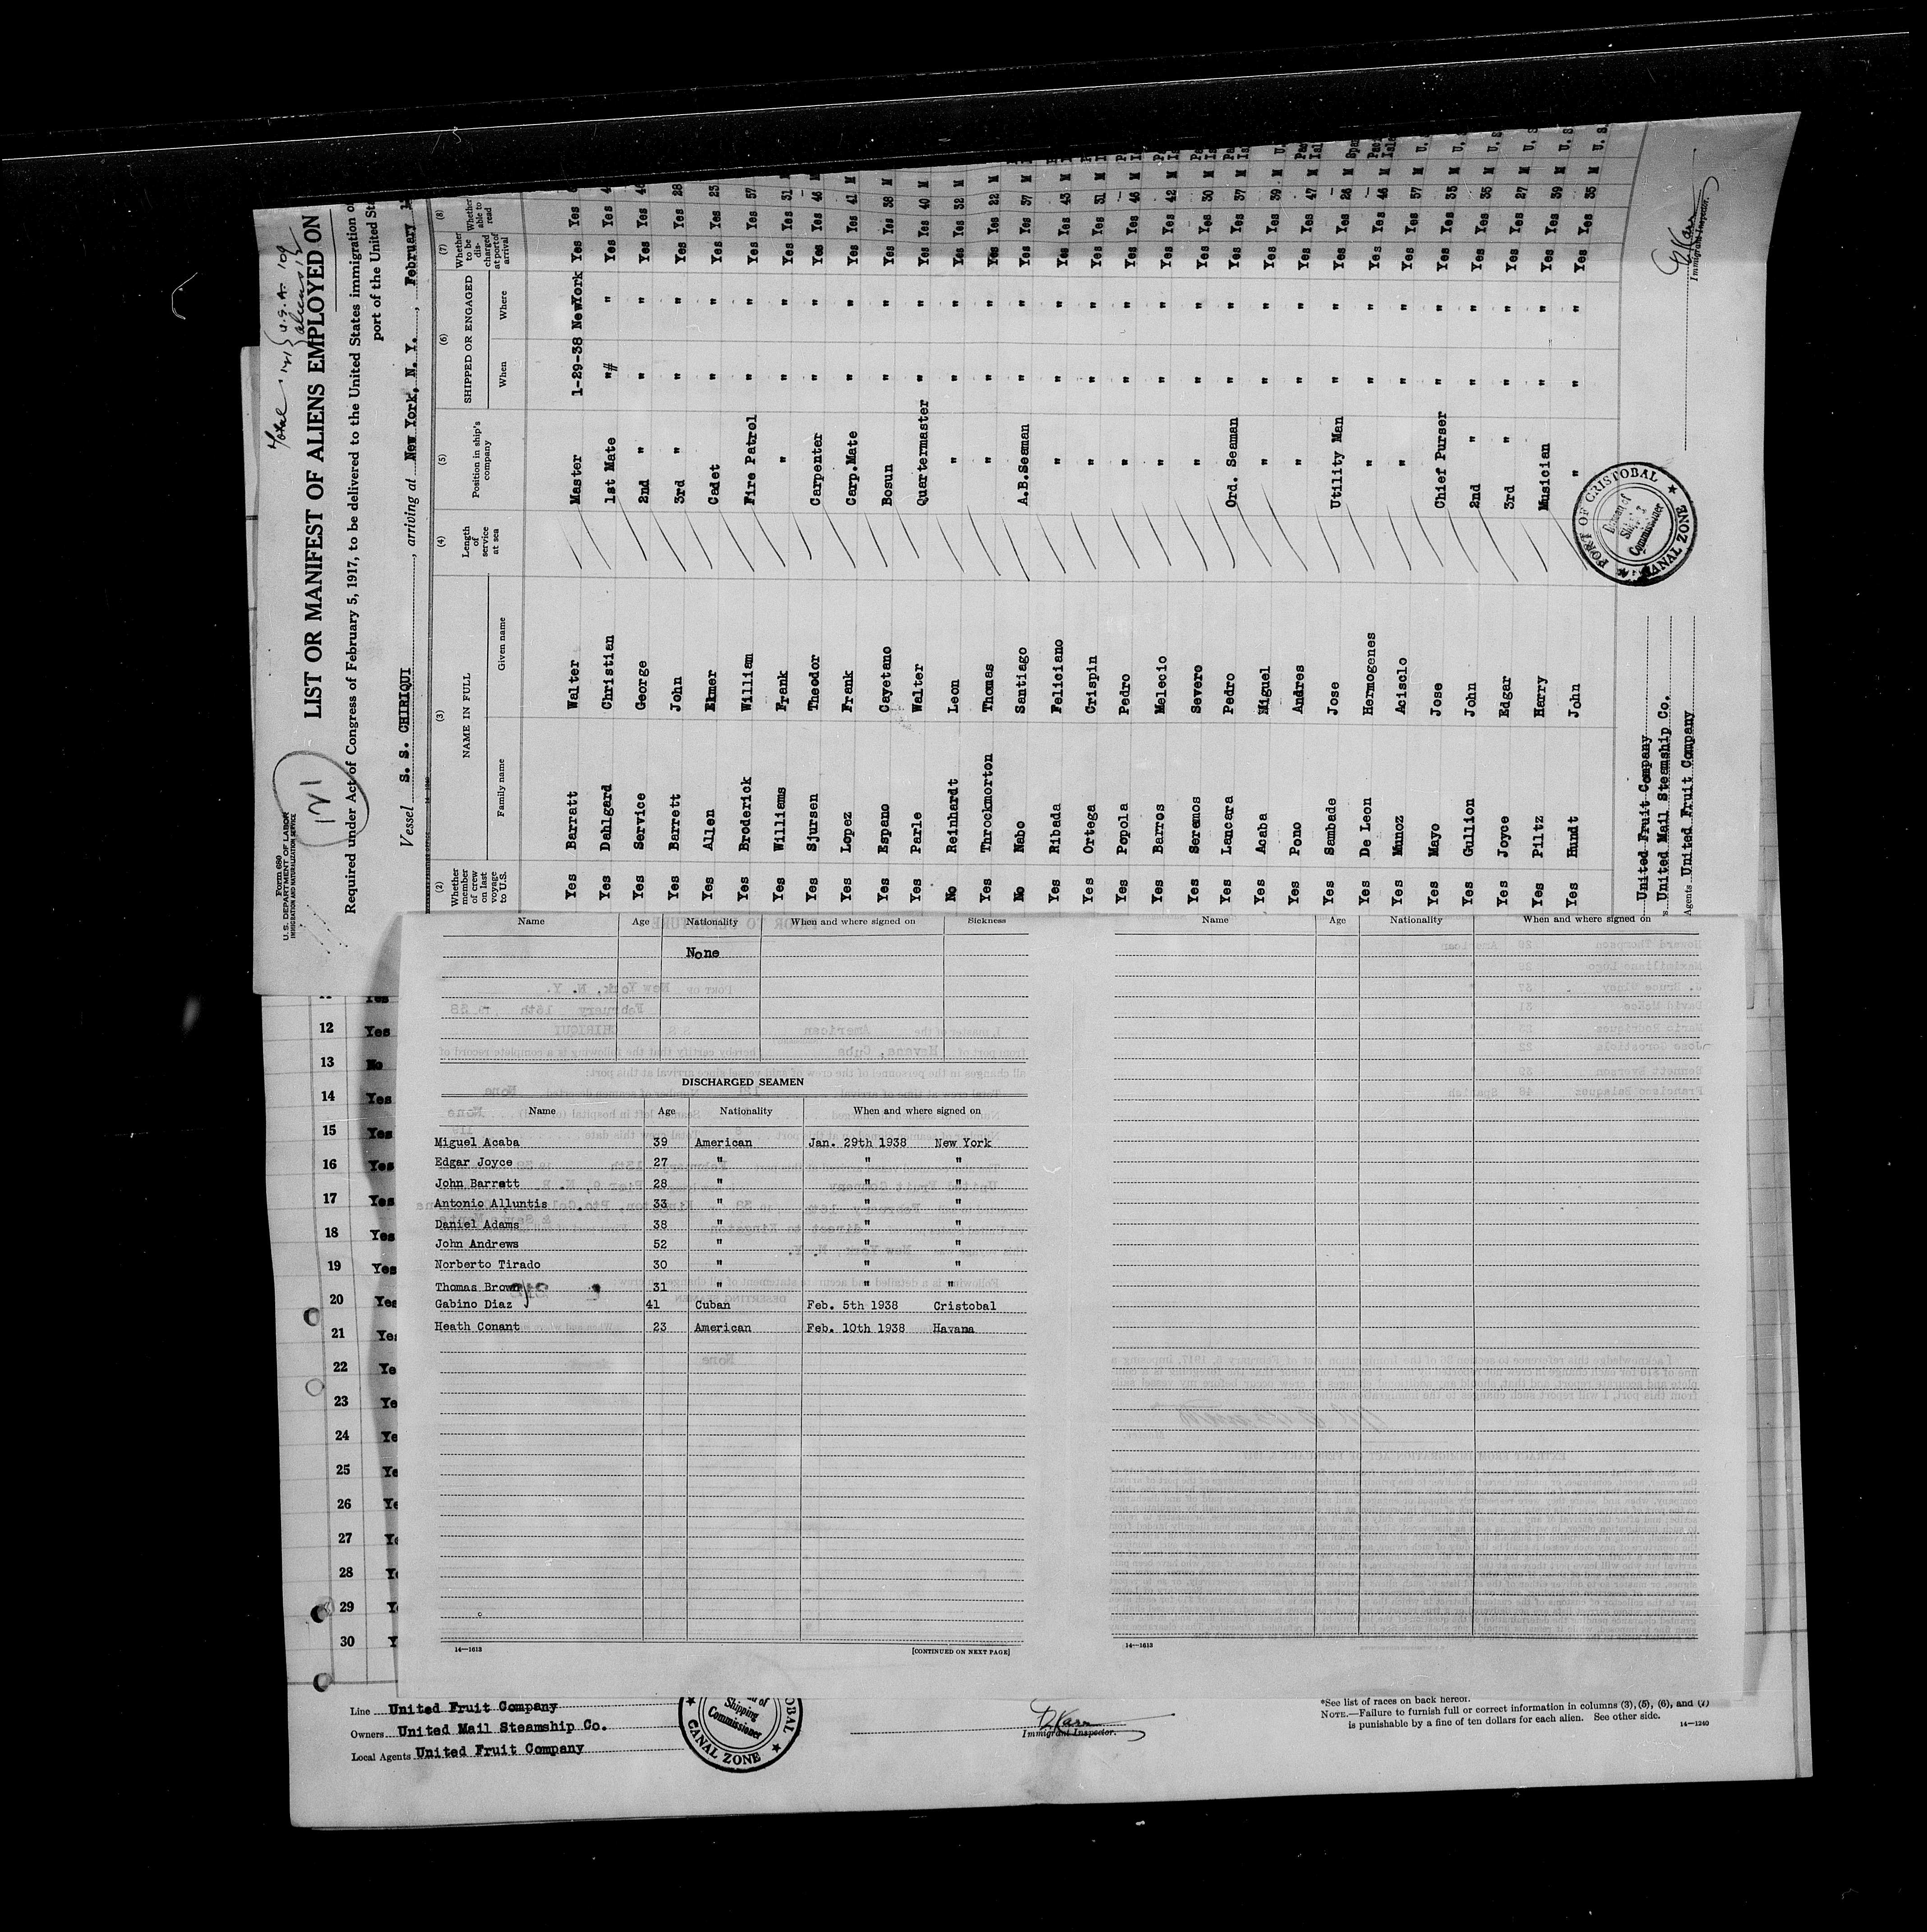 Total 121 { U.S.A. 109
aliens 12
Form 680
U. S. DEPARTMENT OF LABOR
IMMIGRATION AND NATURALIZATION SERVICE
121
LIST OR MANIFEST OF ALIENS EMPLOYED ON
Required under Act of Congress of February 5, 1917, to be delivered to the United States immigration
port of the United
Vessel S. S. CHIRIQUI, arriving at New York, N. Y., February
(2) (3) (4) (5) (6) (7) (8)
Whether member of crew on last voyage to U.S. NAME IN FULL Length of service at sea Position in ship's company SHIPPED OR ENGAGED Whether to be discharged at port of arrival Whether able to read
Family name Given name When Where
Yes Barratt Walter Master 1-29-38 NewYork Yes Yes
Yes Dahlgard Christian 1st Mate "# " Yes Yes
Yes Service George 2nd " " " Yes Yes
Yes Barrett John 3rd " " " Yes Yes 28
Yes Allen Elmer Cadet " " Yes Yes 23
Yes Broderick William Fire Patrol " " Yes Yes 57
Yes Williams Frank " " " Yes Yes 31 M
Yes Sjursen Theodor Carpenter " " Yes Yes 46 M
Yes Lopez Frank Carp.Mate " " Yes Yes 41 M
Yes Espano Cayetano Bosun " " Yes Yes 38 M
Yes Parle Walter Quartermaster " " Yes Yes 40 M
No Reinhardt Leon " " " Yes Yes 32 M
Yes Throckmorton Thomas " " " Yes Yes 22 M
No Nabo Santiago A.B.Seaman " " Yes Yes 37 M
Yes Ribada Feliciano " " " Yes Yes 43 M
Yes Ortega Crispin " " " Yes Yes 31 M
Yes Popola Pedro " " " Yes Yes 46 M
Yes Barros Melecio " " " Yes Yes 42 M
Yes Seremos Severo " " " Yes Yes 30 M
Yes Lancara Pedro Ord. Seaman " " Yes Yes 37 M
Yes Acaba Miguel " " " Yes Yes 39 M U.
Yes Pono Andres " " " Yes Yes 47 M
Yes Sambade Jose Utility Man " " Yes Yes 26 M Spa
Yes De Leon Hermogenes " " " Yes Yes 46 M
Yes Munoz Acisclo " " " Yes Yes 57 M U. S
Yes Mayo Jose Chief Purser " " Yes Yes 35 M U. S
Yes Gullion John 2nd " " " Yes Yes 35 M U. S
Yes Joyce Edgar 3rd " " " Yes Yes 27 M U. S
Yes Piltz Harry Musician " " Yes Yes 39 M U. S
Yes Hundt John " " " Yes Yes 35 M U. S.
United Fruit Company
United Mail Steamship Co.
Agents United Fruit Company
PORT OF CRISTOBAL
Shipping
Commissioner
CANAL ZONE
Immigrant Inspector.
Name Age Nationality When and where signed on Sickness
None
DISCHARGED SEAMEN
Name Age Nationality When and where signed on
Miguel Acaba 39 American Jan. 29th 1938 New York
Edgar Joyce 27 " " "
John Barrett 28 " " "
Antonio Alluntis 33 " " "
Daniel Adams 38 " " "
John Andrews 52 " " "
Norberto Tirado 30 " " "
Thomas Brown 31 " " "
Gabino Diaz 41 Cuban Feb. 5th 1938 Cristobal
Heath Conant 23 American Feb. 10th 1938 Havana
14—1613
[CONTINUED ON NEXT PAGE]
Name Age Nationality When and where signed on
14—1613
11 Yes
12 Yes
13 No
14 Yes
15 Yes
16 Yes
17 Yes
18 Yes
19 Yes
20 Yes
21 Yes
22 Ye
23 Ye
24 Ye
25 Ye
26 Ye
27 Ye
28 Y
29 Y
30 Y
Line United Fruit Company
Owners United Mail Steamship Co.
Local Agents United Fruit Company
Shipping
Commissioner
CANAL ZONE
Immigrant Inspector.
*See list of races on back hereof.
NOTE.—Failure to furnish full or correct information in columns (3), (5), (6), and (7)
is punishable by a fine of ten dollars for each alien. See other side.
14—1240